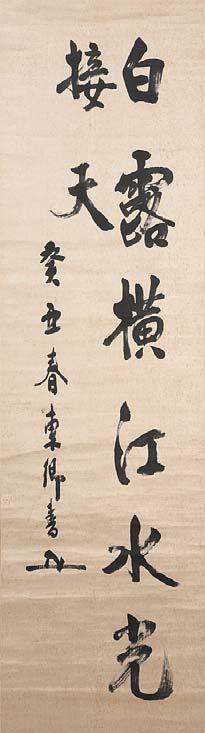 白露橫江水光
接天
癸丑春東卿書